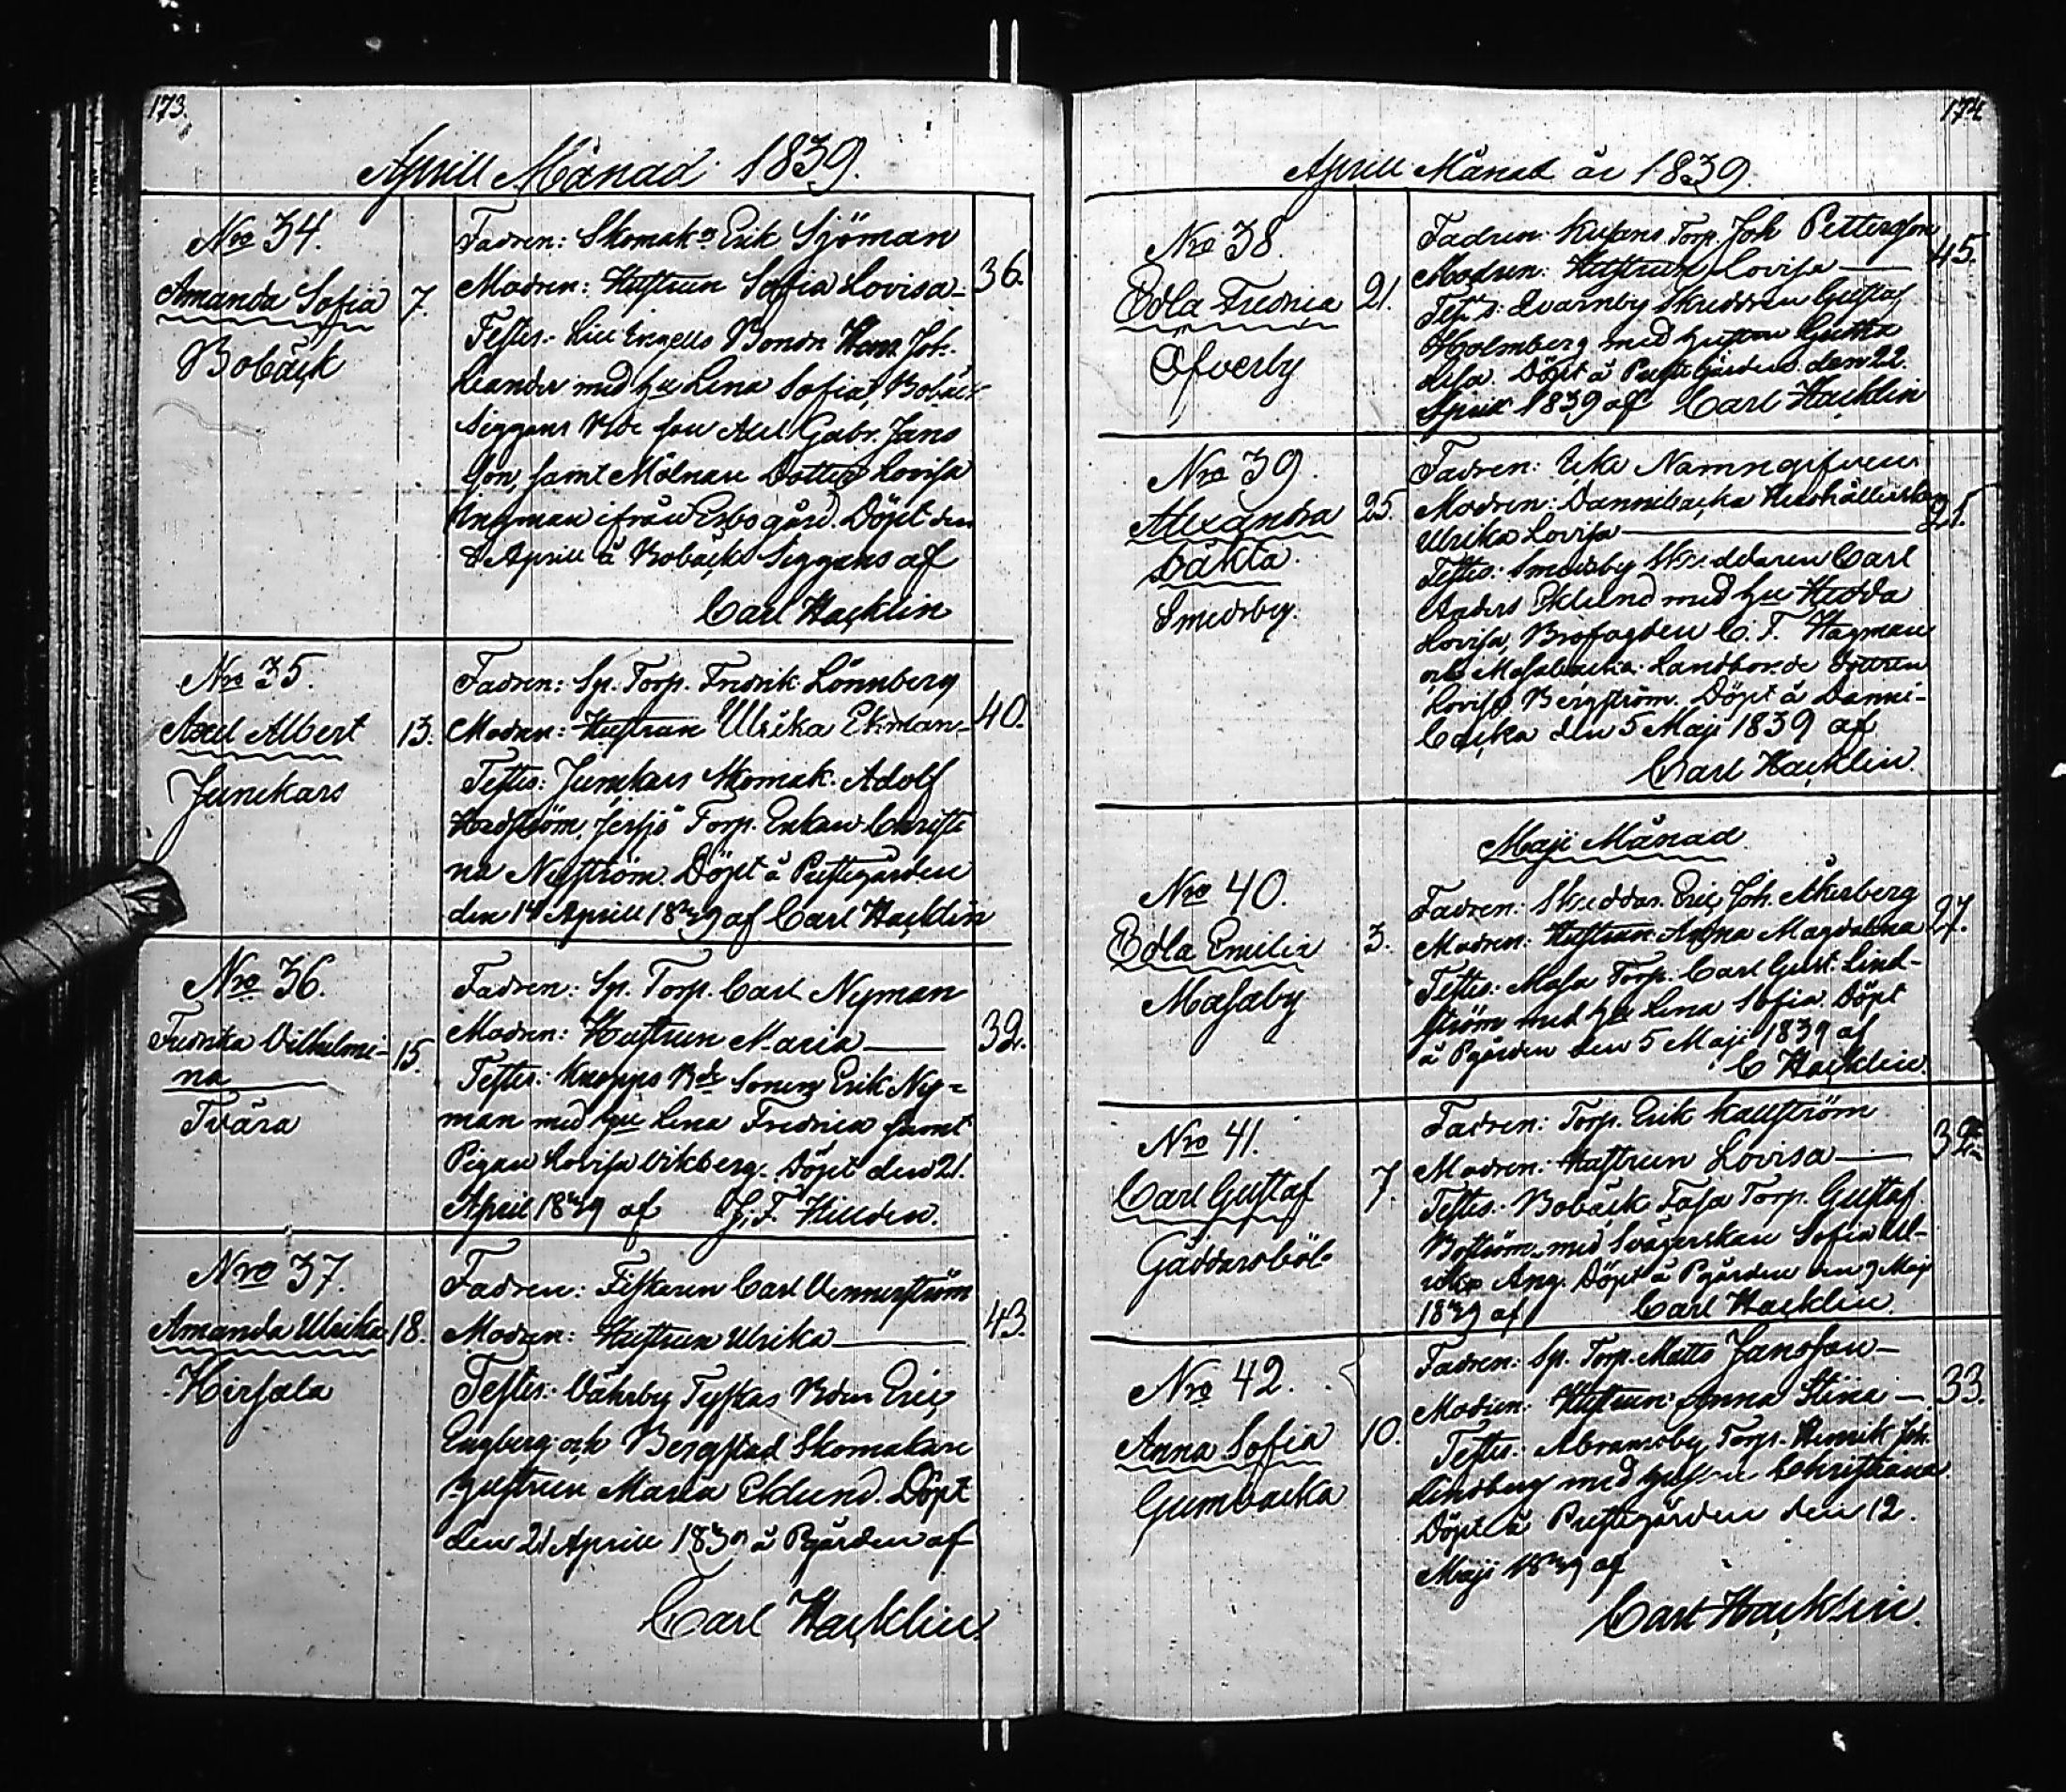 173.
Aprill Månad 1839.
Nro 34.
Amanda Sofia
Bobäck
7.
Fadren: Skomakn Erik Sjöman
Modren: Hustrun Sofia Lovisa
36.
Testes: Lill Engells Bondn Joh.
Leander med hu Lena Sofia, Bobäck
Siggans Axel Gabr. Jans
son, samt Mölnare Dotter Lovisa
Ingman ifrån Esbogård. Döpt den
8 Aprill å Bobäck Siggans af
Carl Hacklin
Nro 35.
Axel Albert
Junckars
13.
Fadren: Sp. Torp. Fredrik Lönnberg
Modren: Hustrun Ulrika Ekman
40.
Testes: Junckars Skomak. Adolf
Torp. Enkan Christi
na Nyström. Döpt å Prestegården
den 14 Aprill 1839 af Carl Hacklin
Nro 36.
Fredrika Vilhelmi-
na
Tvära
15.
Fadren: Sp. Torp. Carl Nyman
Modren: Hustrun Maria
32.
Testes: Knapps Bds Sonen Erik Ny=
man med hu Lena Fredrica samt
Pigan Lovisa Vikberg. Döpt den 21.
April 1839 af J. F. Hilldén.
Nro 37.
Amanda Ulrika
Hirsala
18.
Fadren: Fiskaren Carl Vennerström
Modren: Hustrun Ulrika
43.
Testes: Våhrby Tysskas Bden Eric
Engberg och Bergstad Skomakare
Hustrun Maria Eklund. Döpt
den 21 Aprill 1839 å Pgården af
Carl Hacklin
174
Aprill Månad år 1839.
Nro 38.
Edla Fredrica
Öfverby
21.
Fadren: Torp. Joh Pettersson
Modren: Hustrun Lovisa
45.
Tests: Qvarnby Skreddren Gustaf
Holmberg med hustrun Greta
Lisa. Döpt å Prestegården den 22.
April 1839 af Carl Hacklin
Nro 39.
Alexandra
oäkta.
Smedsby.
25.
Fadren: Icke Namngifven
Modren: Dannsbacka Hushållerskan
Ulrika Lovisa
21.
Testes: Smedsby Skreddaren Carl
Anders Eklund med hu Hedda
Lovisa, Brofogden C. F. Hagman
och Masabacka Landbonde dottren
Lovisa Bergström. Döpt å Danns-
backa den 5 Maji 1839 af
Carl Hacklin.
Maji Månad
Nro 40.
Edla Emilia
Masaby
3.
Fadren: Skreddar. Eric Joh. Åkerberg
Modren: Hustrun Anna Magdalena
27.
Testes: Masa Torp. Carl Gust. Lind-
ström med hu Lena Sofia. Döpt
å Pgården den 5 Maji 1839 af
C Hacklin.
Nro 41.
Carl Gustaf
Gäddarsböle
7.
Fadren: Torp. Erik Kallström
Modren: Hustrun Lovisa
32.
Testes: Bobäck Fasa Torp. Gustaf
Boström med Svägerskan Sofia Ul-
rika Ang. Döpt å Pgården den 9 Maji
1839 af Carl Hacklin.
Nro 42.
Anna Sofia
Gumbacka
10.
Fadren: Sp. Torp. Matts Jansson
Modren: Hustrun Anna Stina
33.
Testes: Abramsby Torp. Henrik Joh.
Lindberg med hustrun Christiana
Döpt å Prestegården den 12.
Maji 1839 af
Carl Hacklin.